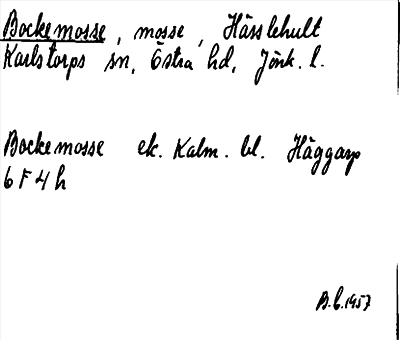 Bockemosse, mosse, Hässlehult
Karlstorps sn, Östra hd, Jönk. l.
Bockemosse ek. Kalm. bl. Häggarp
6 F 4 h
B.E. 1957